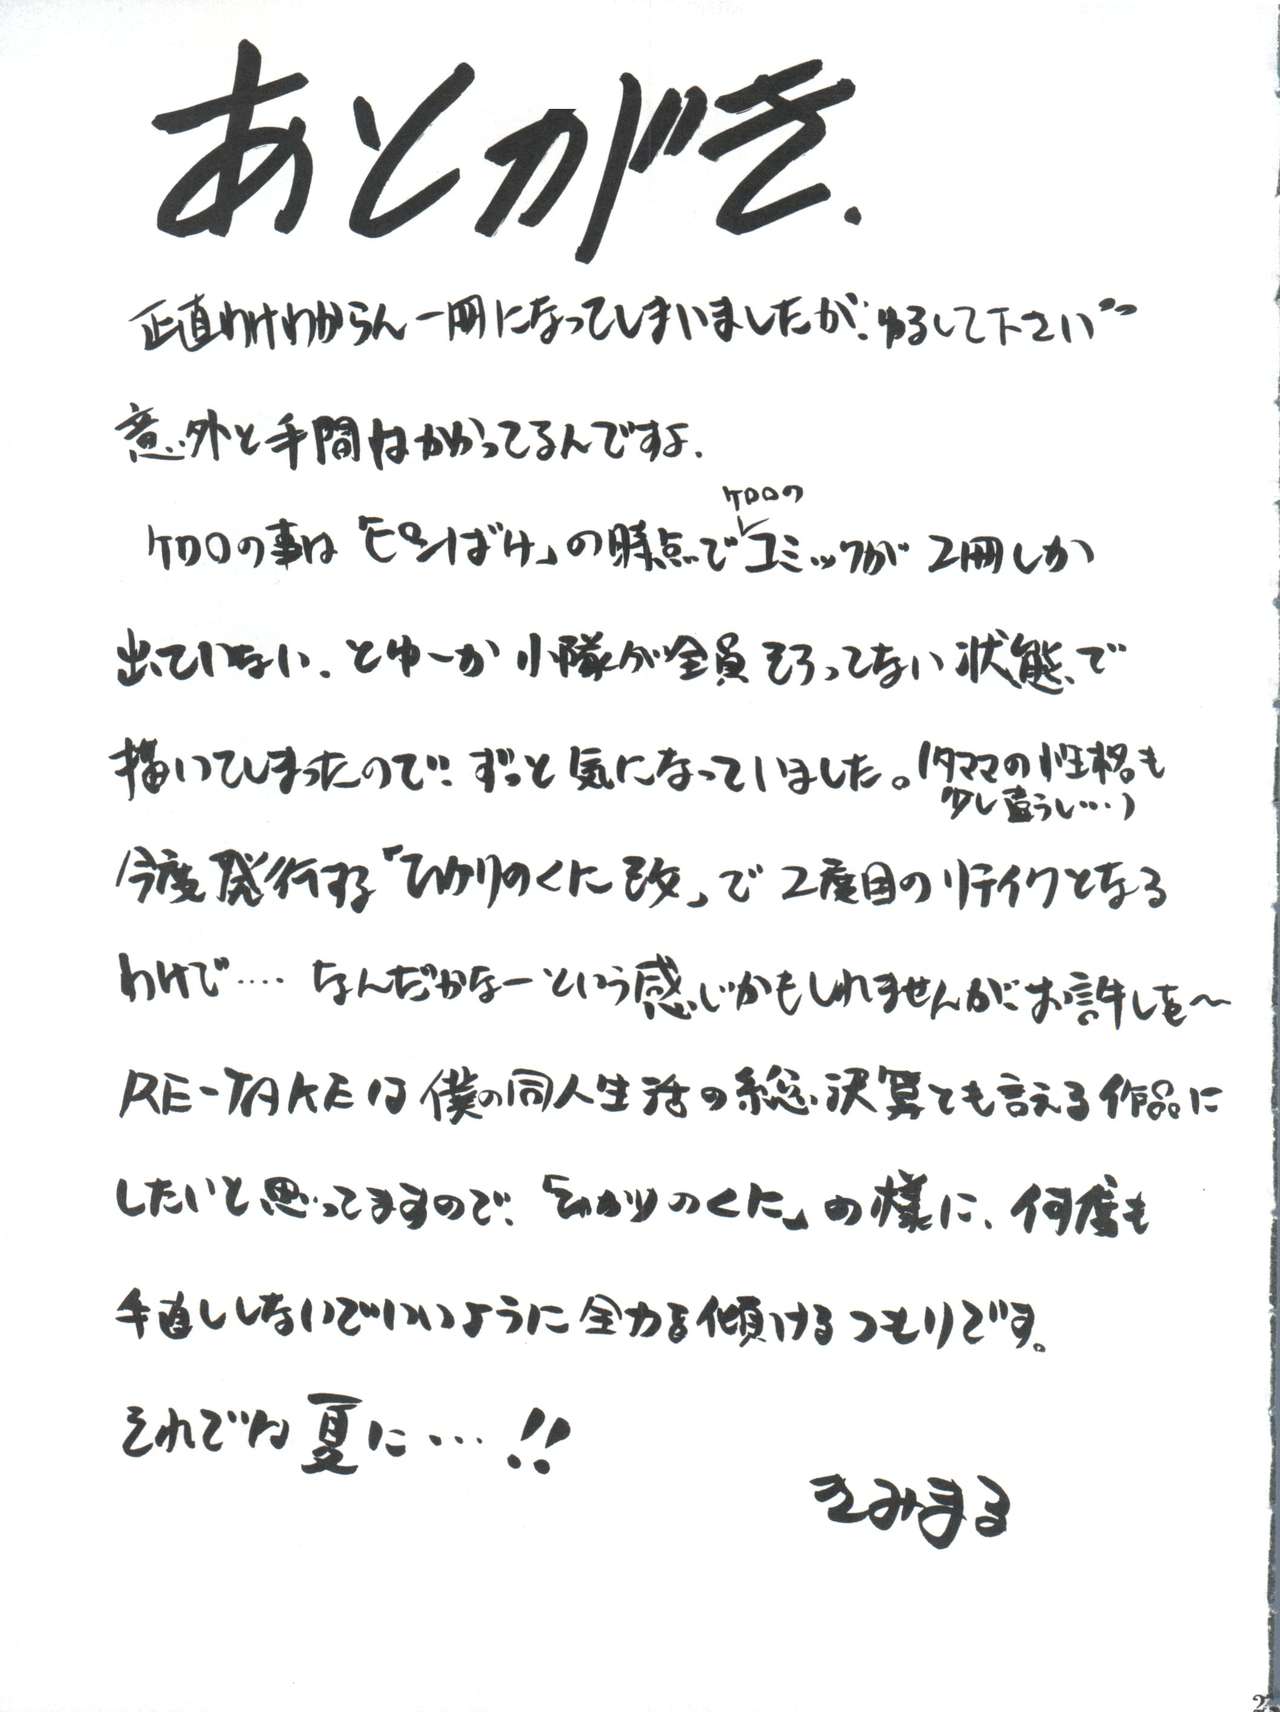 あとがき.
正直わけわからん一冊になってしまいましたが、ゆるして下さい
意外と手間はかかってるんですよ.
ケロロの
ケロロの事は「ピンばけ」の時点でコミックが2冊しか
出ていない. とゆーか小隊が全員そろってない状態で
描いてしまったので、ずっと気になっていました。(タママの性格も
少し違うし…)
今度発行する「ひかりのくに改」で2度目のリテイクとなる
わけで…. なんだかなーという感じかもしれませんが、お許しを～
RE-TAKEは僕の同人生活の総決算とも言える作品に
したいと思ってますので、「ひかりのくに」の様に、何度も
手直ししないでいいように全力を傾けるつもりです。
それでは夏に…!!
きみまる
2